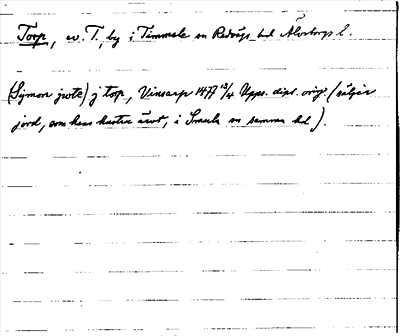 Torp, ev. T., by i Timmele sn Redvägs hd Älvsborgs l.
(Symon grote) j torp, Vinsarp 1477 13/4 Upps. dipl. orig. (säljer
jord, som hans hustru ärvt, i Smula sn samma hd).